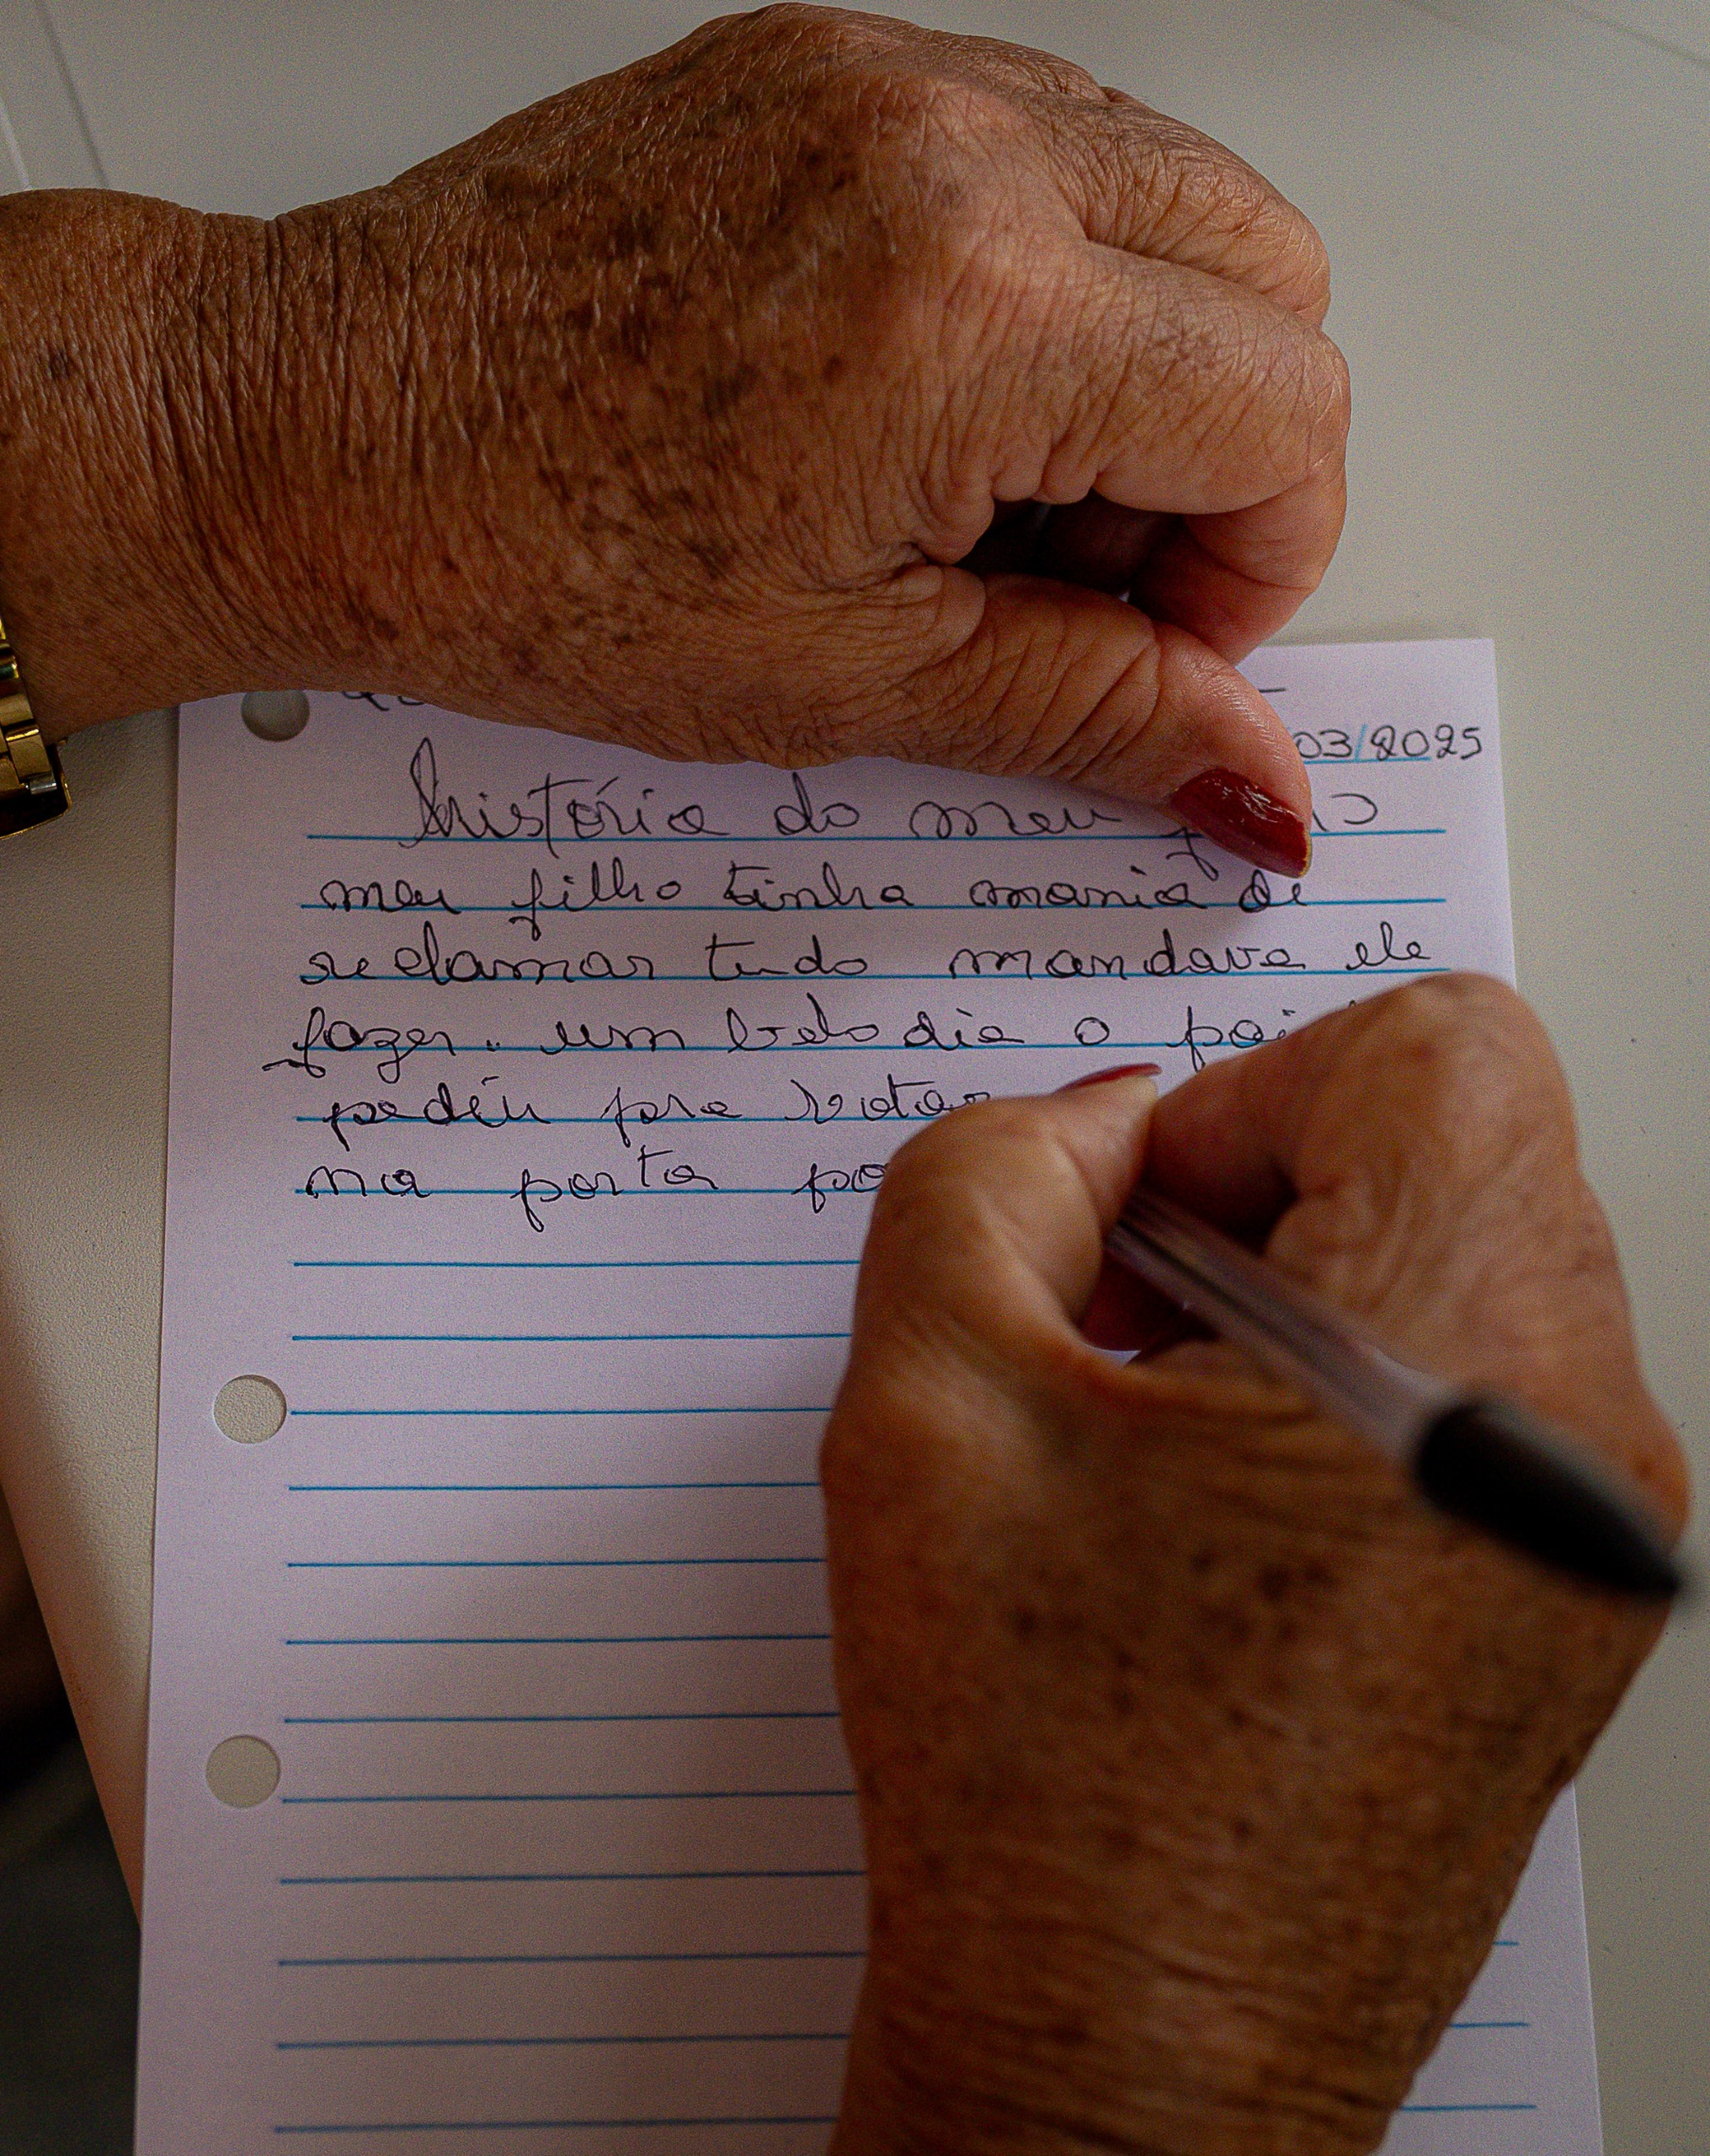 03/2025
história do meu
meu filho tinha mania de
reclamar tudo mandava ele
fazer.. um belo dia o pai
pediu pra botar
na porta